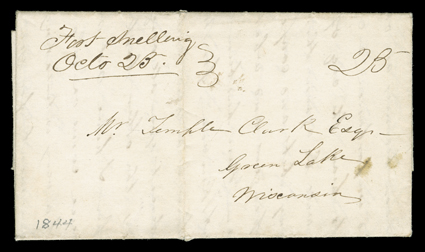 Fort Snelling
Octo 25. 25
Mr Temple Clark Esqr
Green Lake
Wisconsin
1844